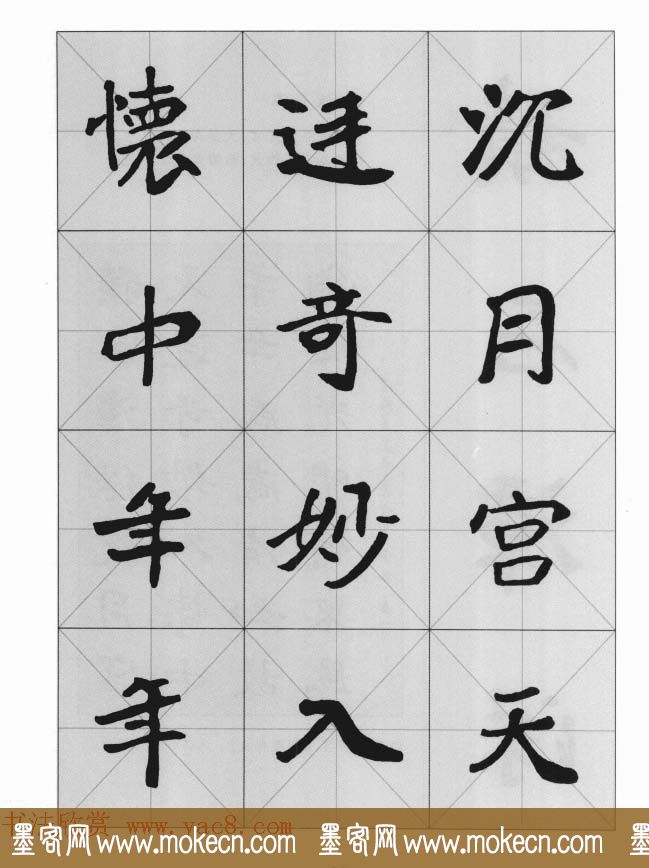 沉月宫天
奇妙入
懷中年年
书法欣赏 www.yac8.com
墨客网 www.mokecn.com 墨客网 www.mokecn.com